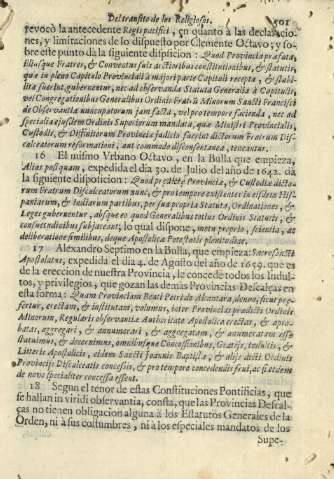 Del transito de los Religiosos. 501
revocò la antecedente Regis pacifici, en quanto à las declaracio-
nes, y limitaciones de lo dispuesto por Clemente Octavo; y so-
bre este punto da la siguiente disposicion: Quod Provincia præfata,
illiusque Fratres, & Conventus suis actioribus constitutionibus, & statutis,
quæ in pleno Capitulo Provinciali à majori parte Capituli recepta, & stabi-
lita fuerint, gubernentur, nec ad observanda Statuta Generalia à Capitulis,
vel Congregationibus Generalibus Ordinis Fratrũ Minorum Sancti Francisci
de Observantia nuncupatorum jam facta, vel pro tempore facienda, nec ad
specialia ejusdem Ordinis Superiorum mandata, quæ Ministri Provincialis,
Custodis, & Diffinitorum Provincia judicio fuerint dictorum Fratrum Dis-
calceatorum reformationi, aut commodo dissonantia, teneantur.
16 El mismo Vrbano Octavo, en la Bulla que empieza,
Alias postquam, expedida el dia 30. de Julio del año de 1642. dà
la siguiente disposicion: Quod prædictæ Provincia, & Custodia dicto-
rum Fratrum Discalceatorum sunt, & pro tempore existentes in eisdem His-
paniarum, & Indiarum partibus, per sua propria Statuta, Ordinationes, &
Leges gubernentur, absque eo quod Generalibus totius Ordinis Statutis, &
consuetudinibus subjaceant; lo qual dispone, motu proprio, scientia, ac
deliberatione similibus, deque Apostolica Potestatis plenitudine.
17 Alexandro Septimo en la Bulla, que empieza; Sacrosancti
Apostolatus, expedida el dia 4. de Agosto del año de 1659. que es
de la ereccion de nuestra Provincia, le concede todos los Indul-
tos, y privilegios, que gozan las demàs Provincias Descalças en
esta forma: Quam Provinciam Beati Petri de Alcantara, denuò, sicut præ-
fertur, erectam, & institutam, volumus, inter Provincias prædicti Ordinis
Minorum, Regularis observantia Authoritate Apostolica erectas, & appro-
batas, aggregari, & annumerari, & aggregatam, & annumeratam esse
statuimus, & decernimus, omnibusque Concessionibus, Gratijs, Indultis, &
Litteris Apostolicis, eidem Sancti Joannis Baptistæ, & alijs dicti Ordinis
Provincijs Discalceatis concessis, & pro tempore concedendis frui, ac si etiam
de novo specialiter concessa essent.
18 Segun el tenor de estas Constituciones Pontificias, que
se hallan in viridi observantia, consta, que las Provincias Descal-
ças no tienen obligacion alguna à los Estatutos Generales de la
Orden, ni à sus costumbres, ni à los especiales mandatos de los
Supe-